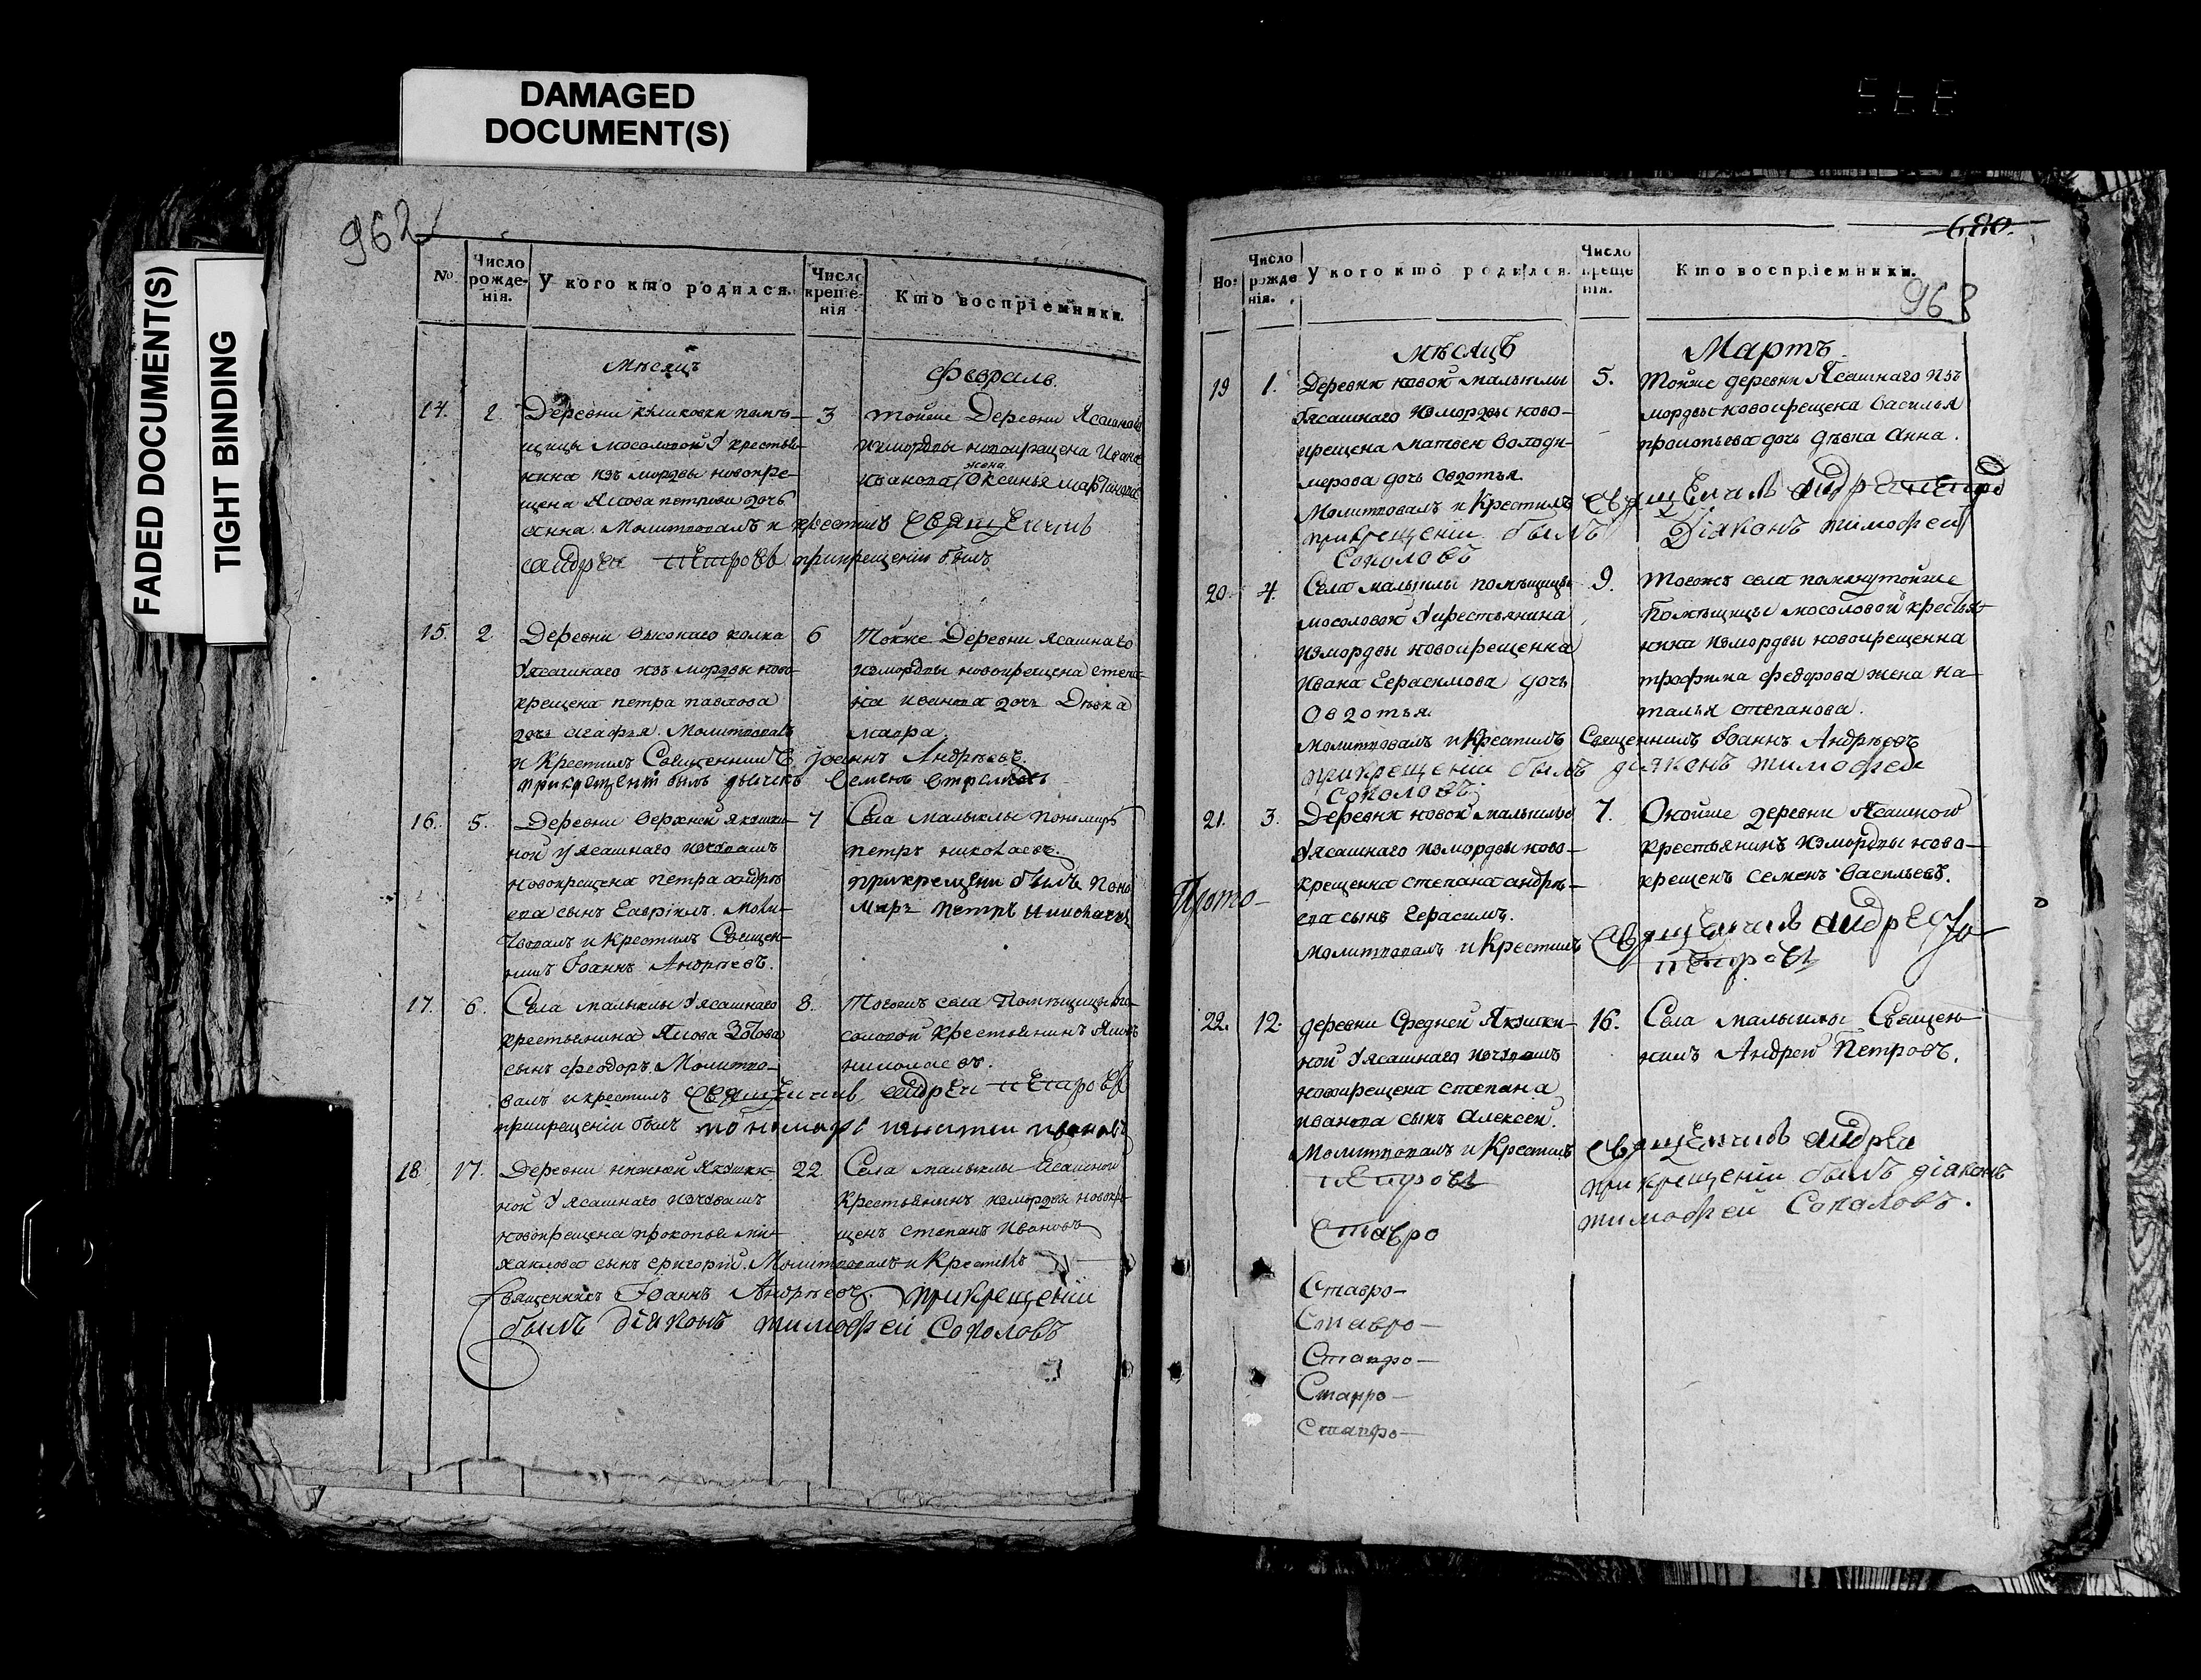 DAMAGED
DOCUMENT(S)
FADED DOCUMENT(S)
TIGHT BINDING
962
№
Число рожденія.
У кого кто родился.
Число крещенія
Кто воспріемники.
Мѣсяцъ Февраль.
14. 2. 3
Деревни куликовки помѣ-
щицы мосоловой У крестья-
нина изъ мордвы новокре-
щена Якова петрова дочь
Анна. Молитвовалъ и крестилъ Священникъ
Андрей Петровъ прикрещеніи былъ
тойже Деревни Ясашнаго
измордвы новокрещена Ивана
Иванова жена Оксинья мартинова
15. 2. 6
Деревни высокаго колка
Уясашнаго изъ мордвы ново-
крещена петра павлова
дочь агафья. Молитвовалъ
и Крестилъ Священникъ Іоаннъ Андрѣевъ.
прикрещеніи былъ дьячекъ Семенъ Стрелковъ
Тойже Деревни ясашнаго
измордвы новокрещена степа-
на иванова дочь Дѣвка
мавра.
16. 5. 7
Деревни верхней якушки-
ной у ясашнаго изчювашъ
новокрещена петра андрѣ-
ева сынъ Гавріилъ. Моли-
твовалъ и Крестилъ Священ-
никъ Іоаннъ Андрѣевъ.
Села малыклы пономарь
петръ николаевъ.
прикрещеніи былъ Поно
маръ Петръ Николаевъ
17. 6. 8.
Села малыклы Уясашнаго
крестьянина Якова Зотова
сынъ феодоръ. Молитво-
валъ и крестилъ Священникъ Андрей Петровъ
прикрещеніи былъ пономарь
Тогожъ села Помѣщицы мо-
соловой крестьянинъ Яковъ
николаевъ.
18. 17. 22
Деревни нижней якушки-
ной У ясашнаго изчювашъ
новокрещена прокопья ми-
хаилова сынъ григорій. Молитвовалъ и Крестилъ
Священникъ Іоаннъ Андрѣевъ. прикрещеніи
былъ діяконъ тимофей Соколовъ
Села малыклы Ясашной
Крестьянинъ измордвы новокре-
щенъ степанъ Ивановъ
680.
968
Но:
Число рожденія.
У кого кто родился.
Число креще нія.
Кто воспріемники.
мѣсяцъ Мартъ.
19 1. 5.
Деревни новой малыклы
Уясашнаго измордвы ново-
крещена матвея володи-
мерова дочь овдотья.
Молитвовалъ и Крестилъ Священникъ Андрей Петровъ
прикрещеніи былъ Діяконъ тимофей
Соколовъ
Тойже деревни Ясашнаго изъ
мордвы новокрещена василья
прокопьева дочь дѣвка Анна.
20. 4. 9.
Села малыклы помѣщицы
мосоловой Укрестьянина
измордвы новокрещенна
Ивана Герасимова дочь
Овдотья.
молитвовалъ и Крестилъ Священникъ Іоаннъ Андрѣевъ
прикрещеніи былъ діяконъ тимофей
Соколовъ
Тогожъ села помянутойже
Помѣщицы мосоловой крестья-
нина измордвы новокрещенна
трофима федорова жена на-
талья степанова.
21. 3. 7.
Деревни новой малыклы
Уясашнаго измордвы ново-
крещенна степана андрѣ-
ева сынъ Герасимъ.
молитвовалъ и Крестилъ Священникъ Андрей
Петровъ
Онойже деревни Ясашной
крестьянинъ измордвы ново-
крещенъ семенъ васильевъ.
Прото-
22. 12. 16.
деревни Средней Якушки-
ной Уясашнаго изчювашъ
новокрещена степана
иванова сынъ алексей.
Молитвовалъ и Крестилъ Священникъ Андрей
Петровъ
прикрещеніи былъ діяконъ
тимофей Соколовъ.
Села малыклы Священ-
никъ Андрей Петровъ.
Ставро
Ставро-
Ставро-
Ставро-
Ставро-
Ставро-